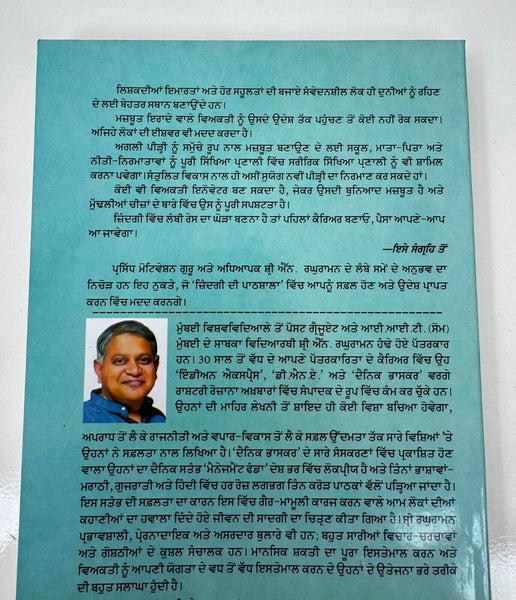 ਲਿਸ਼ਕਦੀਆਂ ਇਮਾਰਤਾਂ ਅਤੇ ਹੋਰ ਸਹੂਲਤਾਂ ਦੀ ਬਜਾਏ ਸੰਵੇਦਨਸ਼ੀਲ ਲੋਕ ਹੀ ਦੁਨੀਆਂ ਨੂੰ ਰਹਿਣ
ਦੇ ਲਈ ਬੇਹਤਰ ਸਥਾਨ ਬਣਾਉਂਦੇ ਹਨ।
ਮਜ਼ਬੂਤ ਇਰਾਦੇ ਵਾਲੇ ਵਿਅਕਤੀ ਨੂੰ ਉਸਦੇ ਉਦੇਸ਼ ਤੱਕ ਪਹੁੰਚਣ ਤੋਂ ਕੋਈ ਨਹੀਂ ਰੋਕ ਸਕਦਾ।
ਅਜਿਹੇ ਲੋਕਾਂ ਦੀ ਈਸ਼ਵਰ ਵੀ ਮਦਦ ਕਰਦਾ ਹੈ।
ਅਗਲੀ ਪੀੜ੍ਹੀ ਨੂੰ ਸਮੁੱਚੇ ਰੂਪ ਨਾਲ ਮਜ਼ਬੂਤ ਬਣਾਉਣ ਦੇ ਲਈ ਸਕੂਲ, ਮਾਤਾ-ਪਿਤਾ ਅਤੇ
ਨੀਤੀ-ਨਿਰਮਾਤਾਵਾਂ ਨੂੰ ਪੂਰੀ ਸਿੱਖਿਆ ਪ੍ਰਣਾਲੀ ਵਿੱਚ ਸਰੀਰਿਕ ਸਿੱਖਿਆ ਪ੍ਰਣਾਲੀ ਨੂੰ ਵੀ ਸ਼ਾਮਿਲ
ਕਰਨਾ ਪਵੇਗਾ। ਸੰਤੁਲਿਤ ਵਿਕਾਸ ਨਾਲ ਹੀ ਅਸੀਂ ਸੁਯੋਗ ਨਵੀਂ ਪੀੜ੍ਹੀ ਦਾ ਨਿਰਮਾਣ ਕਰ ਸਕਦੇ ਹਾਂ।
ਕੋਈ ਵੀ ਵਿਅਕਤੀ ਇਨੋਵੇਟਰ ਬਣ ਸਕਦਾ ਹੈ, ਜੇਕਰ ਉਸਦੀ ਬੁਨਿਆਦ ਮਜ਼ਬੂਤ ਹੈ ਅਤੇ
ਮੁੱਢਲੀਆਂ ਚੀਜ਼ਾਂ ਦੇ ਬਾਰੇ ਵਿੱਚ ਉਸ ਨੂੰ ਪੂਰੀ ਸਪਸ਼ਟਤਾ ਹੈ।
ਜ਼ਿੰਦਗੀ ਵਿੱਚ ਲੰਬੀ ਰੇਸ ਦਾ ਘੋੜਾ ਬਣਨਾ ਹੈ ਤਾਂ ਪਹਿਲਾਂ ਕੈਰਿਅਰ ਬਣਾਓ, ਪੈਸਾ ਆਪਣੇ-ਆਪ
ਆ ਜਾਵੇਗਾ।
—ਇਸੇ ਸੰਗ੍ਰਹਿ ਤੋਂ
ਪ੍ਰਸਿੱਧ ਮੋਟਿਵੇਸ਼ਨ ਗੁਰੂ ਅਤੇ ਅਧਿਆਪਕ ਸ਼੍ਰੀ ਐੱਨ. ਰਘੁਰਾਮਨ ਦੇ ਲੰਬੇ ਸਮੇਂ ਦੇ ਅਨੁਭਵ ਦਾ
ਨਿਚੋੜ ਹਨ ਇਹ ਨੁਕਤੇ, ਜੋ ‘ਜ਼ਿੰਦਗੀ ਦੀ ਪਾਠਸ਼ਾਲਾ’ ਵਿੱਚ ਆਪਨੂੰ ਸਫ਼ਲ ਹੋਣ ਅਤੇ ਉਦੇਸ਼ ਪ੍ਰਾਪਤ
ਕਰਨ ਵਿੱਚ ਮਦਦ ਕਰਨਗੇ।
ਮੁੰਬਈ ਵਿਸ਼ਵਵਿਦਿਆਲੇ ਤੋਂ ਪੋਸਟ ਗ੍ਰੈਜੂਏਟ ਅਤੇ ਆਈ.ਆਈ.ਟੀ. (ਸੋਮ)
ਮੁੰਬਈ ਦੇ ਸਾਬਕਾ ਵਿਦਿਆਰਥੀ ਸ਼੍ਰੀ ਐੱਨ. ਰਘੁਰਾਮਨ ਹੰਢੇ ਹੋਏ ਪੱਤਰਕਾਰ
ਹਨ। 30 ਸਾਲ ਤੋਂ ਵੱਧ ਦੇ ਆਪਣੇ ਪੱਤਰਕਾਰਿਤਾ ਦੇ ਕੈਰਿਅਰ ਵਿੱਚ ਉਹ
‘ਇੰਡੀਅਨ ਐਕਸਪ੍ਰੈਸ’, ‘ਡੀ.ਐਨ.ਏ’ ਅਤੇ ‘ਦੈਨਿਕ ਭਾਸਕਰ’ ਵਰਗੇ
ਰਾਸ਼ਟਰੀ ਰੋਜ਼ਾਨਾ ਅਖ਼ਬਾਰਾਂ ਵਿੱਚ ਸੰਪਾਦਕ ਦੇ ਰੂਪ ਵਿੱਚ ਕੰਮ ਕਰ ਚੁੱਕੇ ਹਨ।
ਉਹਨਾਂ ਦੀ ਮਾਹਿਰ ਲੇਖਨੀ ਤੋਂ ਸ਼ਾਇਦ ਹੀ ਕੋਈ ਵਿਸ਼ਾ ਬਚਿਆ ਹੋਵੇਗਾ,
ਅਪਰਾਧ ਤੋਂ ਲੈ ਕੇ ਰਾਜਨੀਤੀ ਅਤੇ ਵਪਾਰ-ਵਿਕਾਸ ਤੋਂ ਲੈ ਕੇ ਸਫ਼ਲ ਉੱਦਮਤਾ ਤੱਕ ਸਾਰੇ ਵਿਸ਼ਿਆਂ ’ਤੇ
ਉਹਨਾਂ ਨੇ ਸਫ਼ਲਤਾ ਨਾਲ ਲਿਖਿਆ ਹੈ। ‘ਦੈਨਿਕ ਭਾਸਕਰ’ ਦੇ ਸਾਰੇ ਸੰਸਕਰਣਾਂ ਵਿੱਚ ਪ੍ਰਕਾਸ਼ਿਤ ਹੋਣ
ਵਾਲਾ ਉਹਨਾਂ ਦਾ ਦੈਨਿਕ ਸਤੰਭ ‘ਮੈਨੇਜਮੈਂਟ ਫੰਡਾ’ ਦੇਸ਼ ਭਰ ਵਿੱਚ ਲੋਕਪ੍ਰੀਯ ਹੈ ਅਤੇ ਤਿੰਨਾਂ ਭਾਸ਼ਾਵਾਂ-
ਮਰਾਠੀ, ਗੁਜਰਾਤੀ ਅਤੇ ਹਿੰਦੀ ਵਿੱਚ ਹਰ ਰੋਜ਼ ਲਗਭਗ ਤਿੰਨ ਕਰੋੜ ਪਾਠਕਾਂ ਵੱਲੋਂ ਪੜ੍ਹਿਆ ਜਾਂਦਾ ਹੈ।
ਇਸ ਸਤੰਭ ਦੀ ਸਫ਼ਲਤਾ ਦਾ ਕਾਰਨ ਇਸ ਵਿੱਚ ਗੈਰ-ਮਾਮੂਲੀ ਕਾਰਜ ਕਰਨ ਵਾਲੇ ਆਮ ਲੋਕਾਂ ਦੀਆਂ
ਕਹਾਣੀਆਂ ਦਾ ਹਵਾਲਾ ਦਿੰਦੇ ਹੋਏ ਜੀਵਨ ਦੀ ਸਾਦਗੀ ਦਾ ਚਿਤ੍ਰਣ ਕੀਤਾ ਗਿਆ ਹੈ। ਸ਼੍ਰੀ ਰਘੁਰਾਮਨ
ਪ੍ਰਭਾਵਸ਼ਾਲੀ, ਪ੍ਰੇਰਨਾਦਾਇਕ ਅਤੇ ਅਸਰਦਾਰ ਬੁਲਾਰੇ ਵੀ ਹਨ; ਬਹੁਤ ਸਾਰੀਆਂ ਵਿਚਾਰ-ਚਰਚਾਵਾਂ
ਅਤੇ ਗੋਸ਼ਠੀਆਂ ਦੇ ਕੁਸ਼ਲ ਸੰਚਾਲਕ ਹਨ। ਮਾਨਸਿਕ ਸ਼ਕਤੀ ਦਾ ਪੂਰਾ ਇਸਤੇਮਾਲ ਕਰਨ ਅਤੇ
ਵਿਅਕਤੀ ਨੂੰ ਆਪਣੀ ਯੋਗਤਾ ਦੇ ਵਧ ਤੋਂ ਵੱਧ ਇਸਤੇਮਾਲ ਕਰਨ ਦੇ ਉਹਨਾਂ ਦੇ ਉਤੇਜਨਾ ਭਰੇ ਤਰੀਕੇ
ਦੀ ਬਹੁਤ ਸਲਾਘਾ ਹੁੰਦੀ ਹੈ।